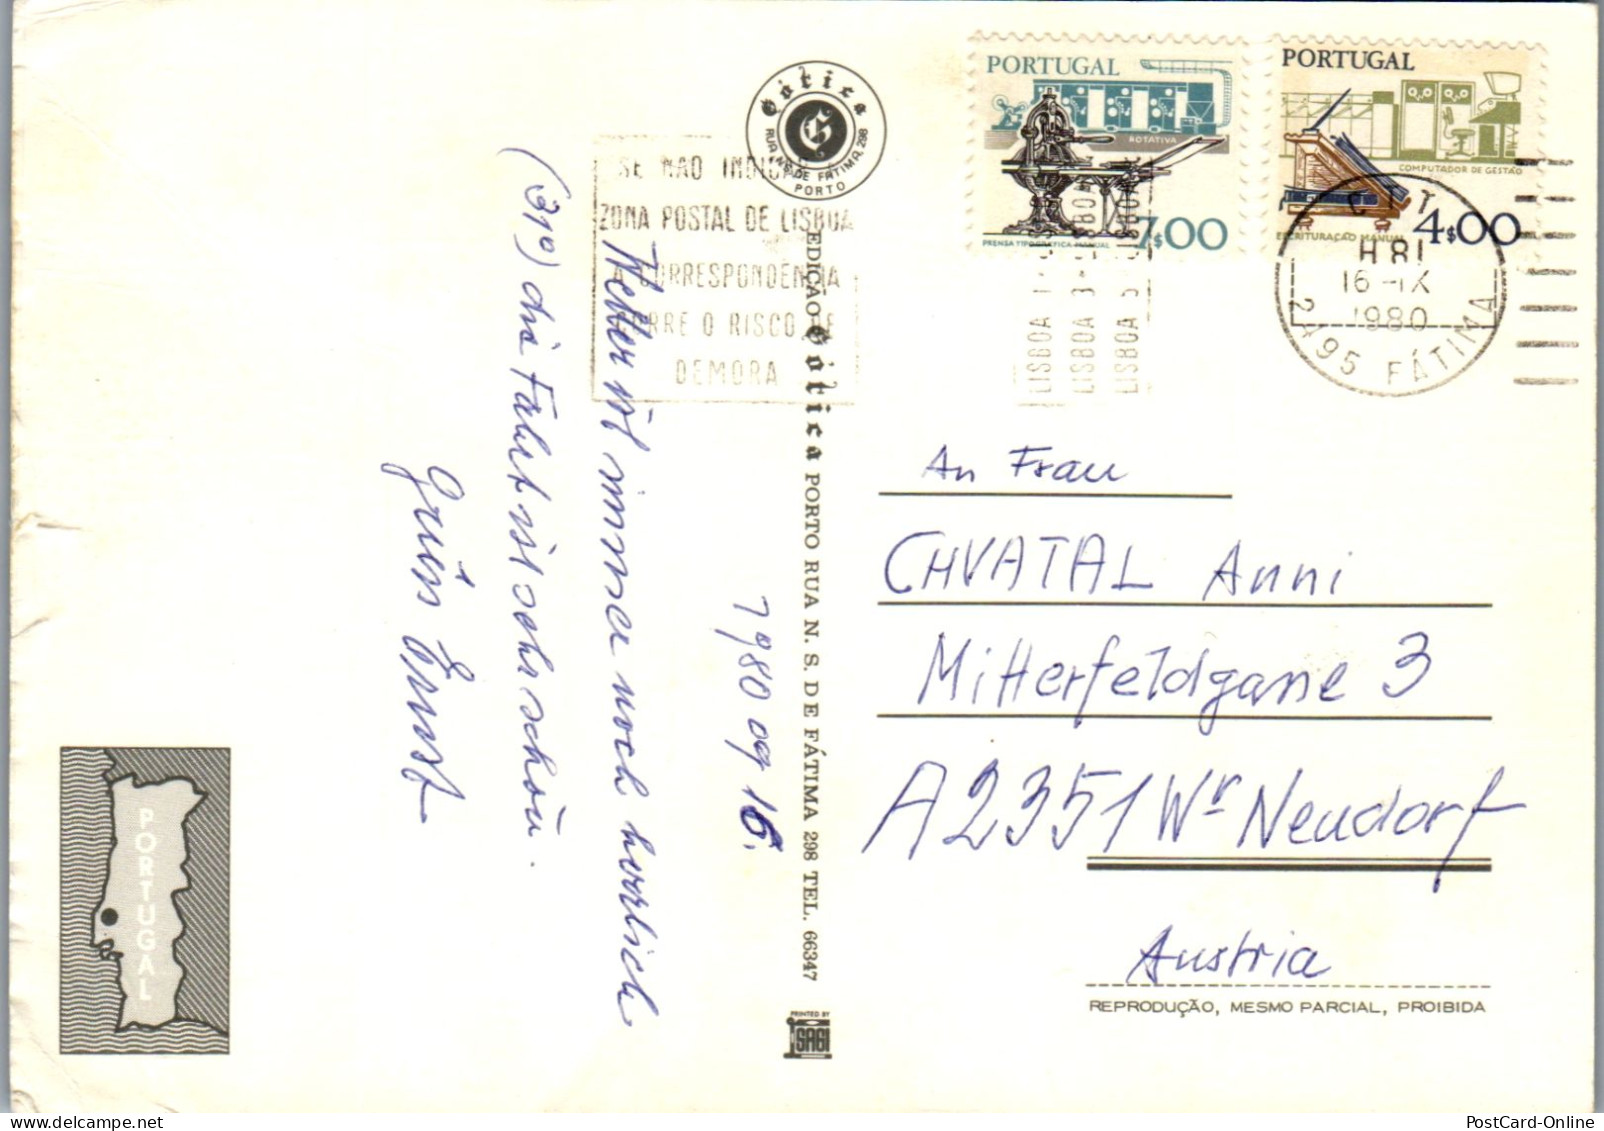 1980 09 16.
Wetter ist immer noch herrlich
(31°) die Fahrt ist sehr schön.
Grüss Ernst
Gótica
RUA N. S. DE FÁTIMA, 298
PORTO
EDIÇÃO Gótica PORTO RUA N. S. DE FÁTIMA 298 TEL. 66347
PRINTED BY
SAGI
SE NÃO INDICAR A
ZONA POSTAL DE LISBOA
A CORRESPONDÊNCIA
CORRE O RISCO DE
DEMORA
LISBOA 1
LISBOA 3
LISBOA 5
PORTUGAL
ROTATIVA
PRENSA TIPOGRÁFICA MANUAL
7$00
PORTUGAL
COMPUTADOR DE GESTÃO
ESCRITURAÇÃO MANUAL
4$00
CTT
H81
16-IX
1980
2495 FÁTIMA
An Frau
CHVATAL Anni
Mitterfeldgasse 3
A 2351 Wr Neudorf
Austria
REPRODUÇÃO, MESMO PARCIAL, PROIBIDA
PORTUGAL
PostCard-Online